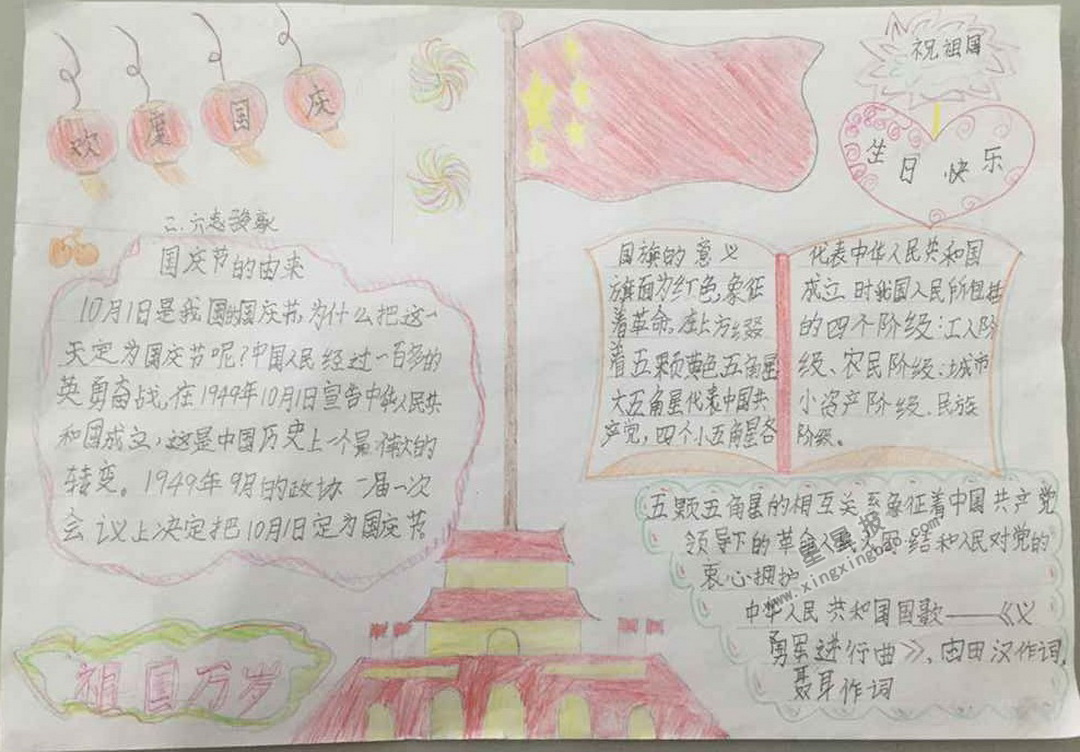 欢度国庆
祝祖国
生日快乐
国庆节的由来
10月1日是我国的国庆节,为什么把这一
天定为国庆节呢?中国人民经过一百多的
英勇奋战,在1949年10月1日宣告中华人民共
和国成立,这是中国历史上一个最伟大的
转变。1949年9月的政协一届一次
会议上决定把10月1日定为国庆节。
祖国万岁
国旗的意义
旗面为红色,象征
着革命,左上方缀
着五颗黄色五角星
大五角星代表中国共
产党,四个小五角星各
代表中华人民共和国
成立时我国人民所包括
的四个阶级:工人阶
级、农民阶级、城市
小资产阶级、民族
阶级。
五颗五角星的相互关系象征着中国共产党
领导下的革命人民大团结和人民对党的
衷心拥护
中华人民共和国国歌——《义
勇军进行曲》,由田汉作词,
聂耳作词
星星报
www.xingxingbao.com